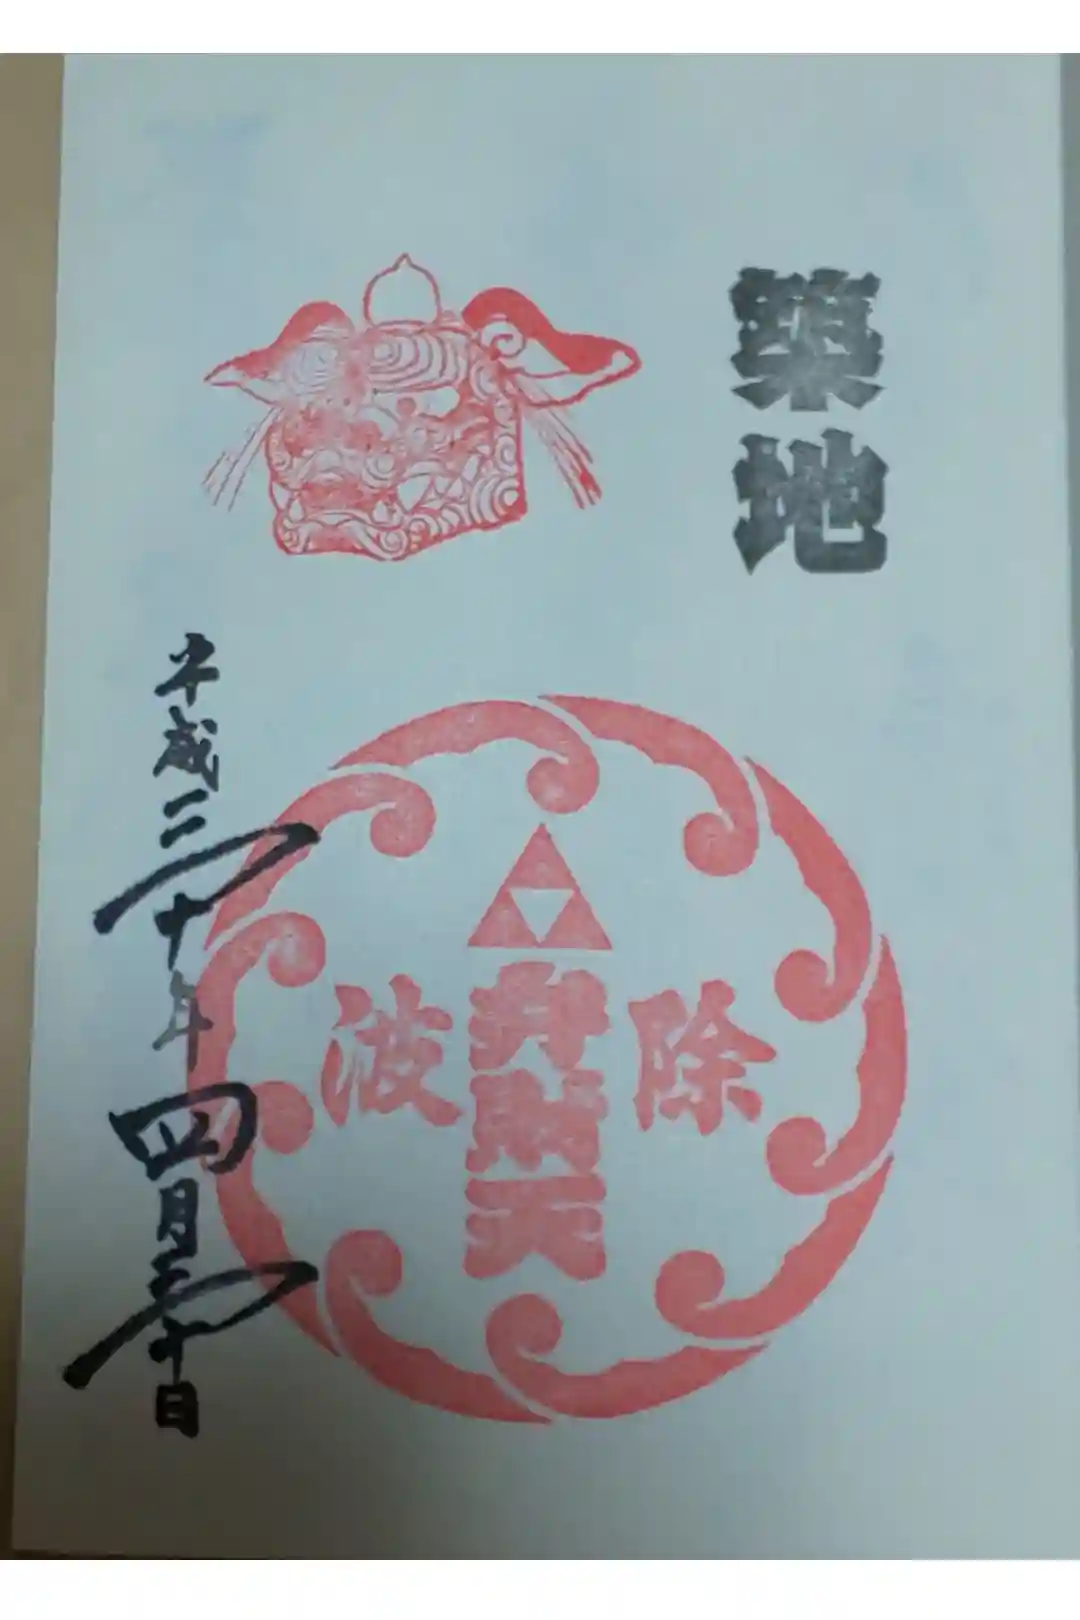 築地
波除
弁財天
平成三十年四月三十日